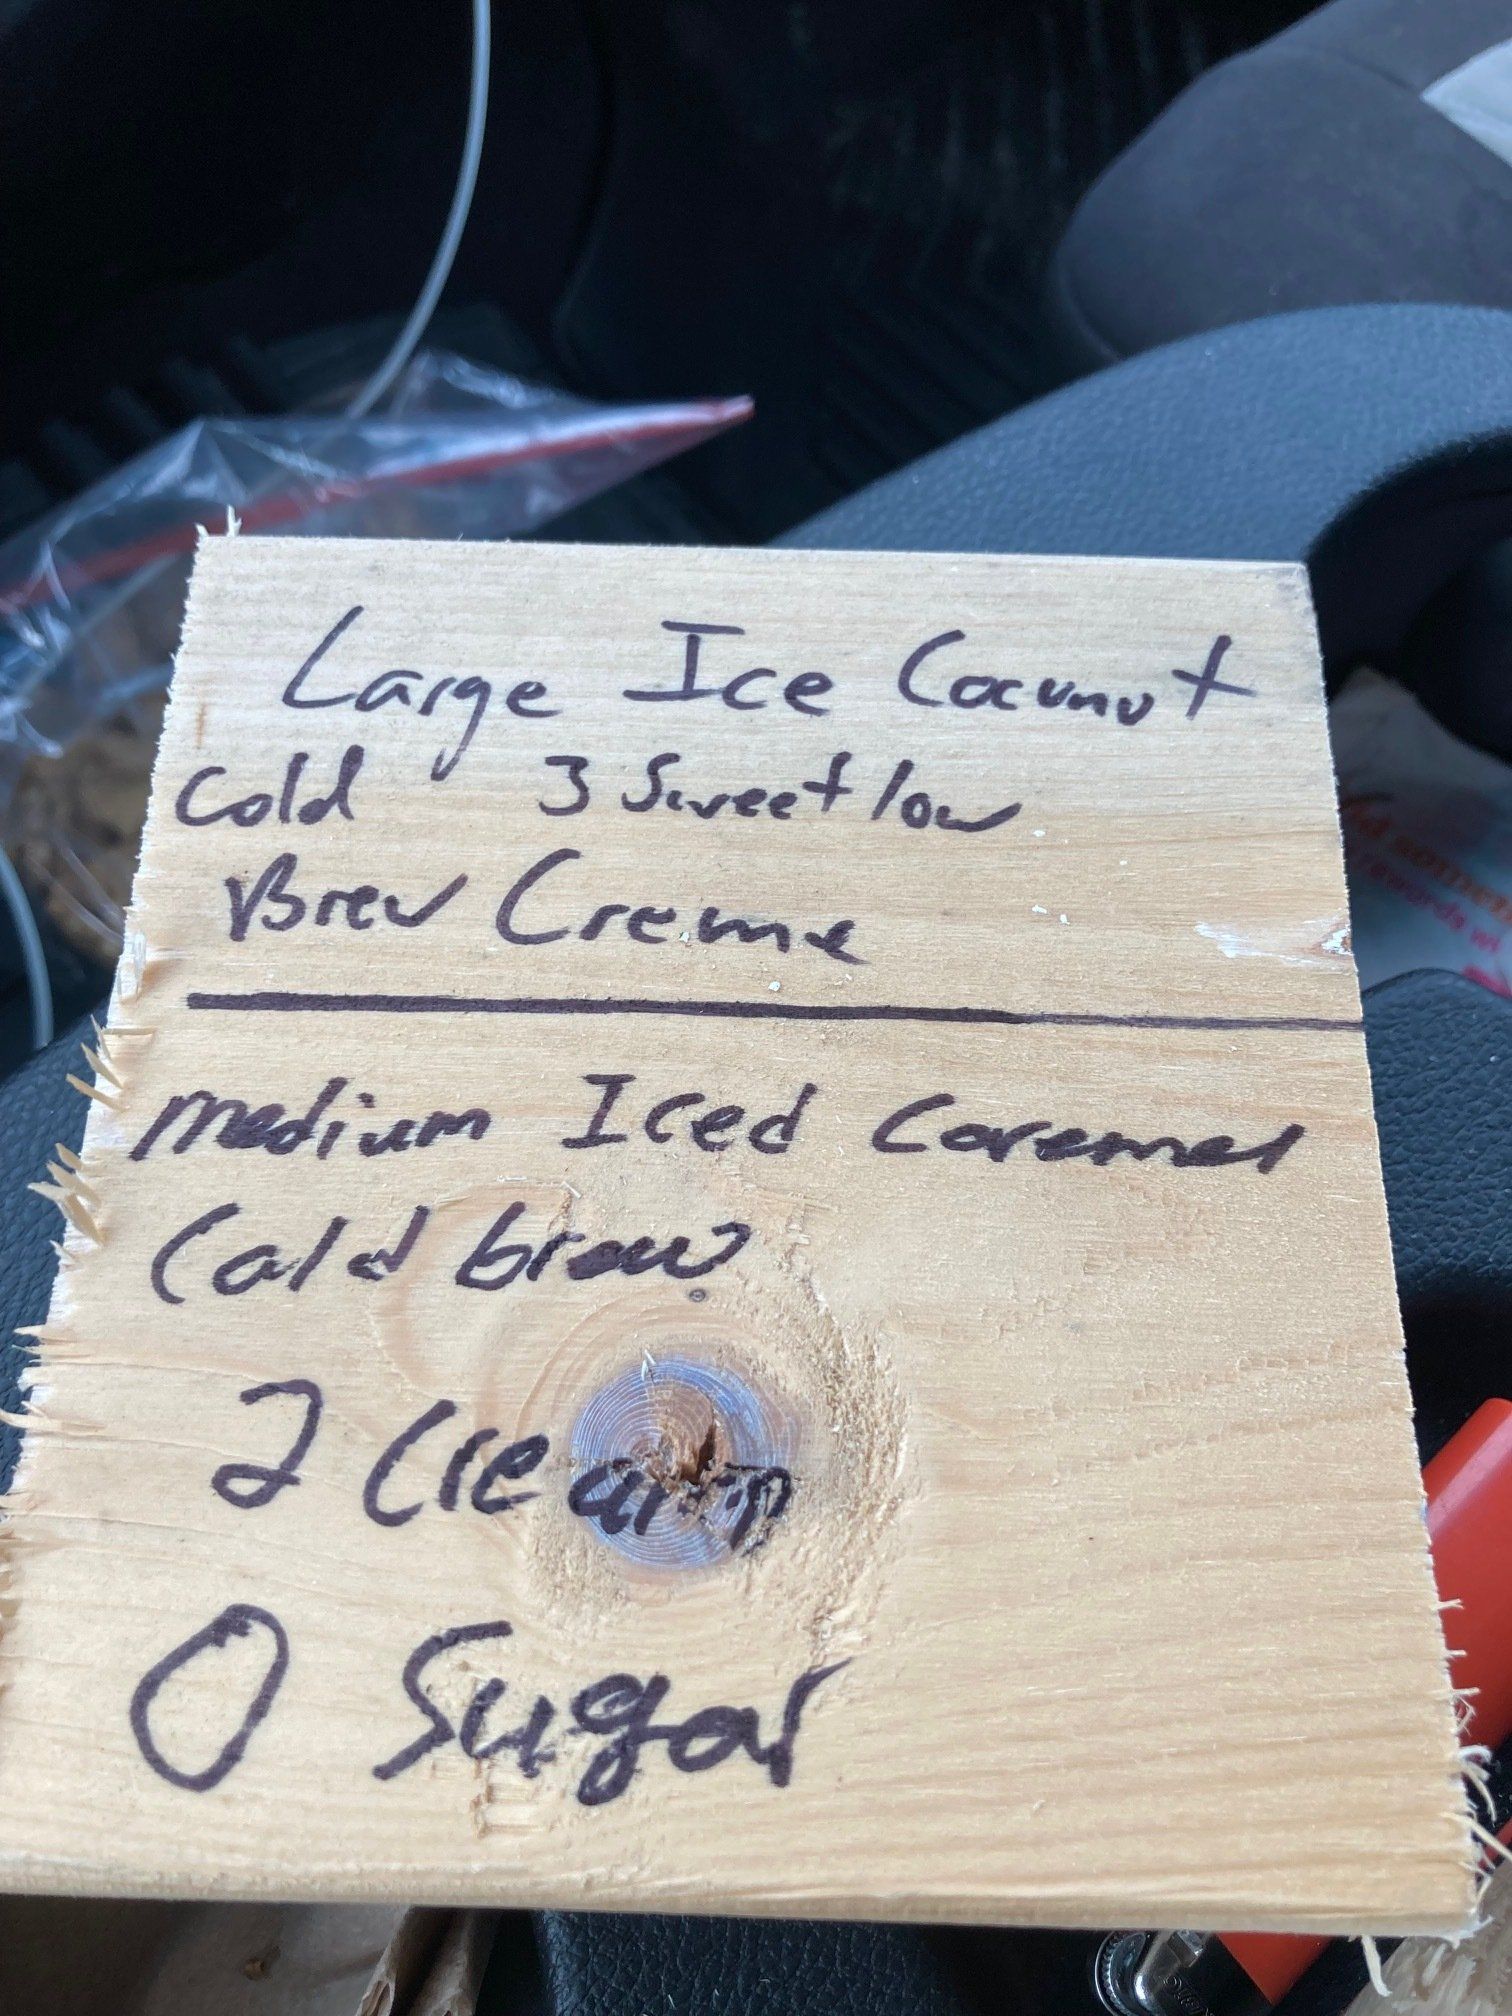 Large Ice Cocunut
Cold 3 Sweet low
Brew Creme
medium Iced Caremel
Cold brew
2 Cream
0 Sugar
rewards wi